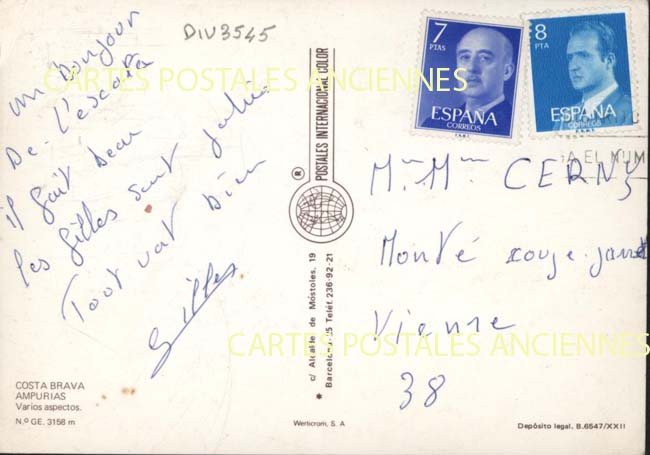 DIV3545
un bonjour
De L'escala
il fait beau
les filles sont jolies
Tout vat bien
Gilles
COSTA BRAVA
AMPURIAS
Varios aspectos.
N.º GE. 3158 m
POSTALES INTERNACIONAL COLOR
®
c/ Alcalde de Móstoles, 19
* Barcelona-25 Teléf. 236-92-21
Werticrom, S. A
7
PTAS
ESPAÑA
CORREOS
8
PTA
ESPAÑA
CORREOS
A EL NUM
Mr Mm CERNY
Monté rouge
Vienne
38
Depósito legal. B.6547/XXII
CARTES POSTALES ANCIENNES
CARTES POSTALES ANCIENNES